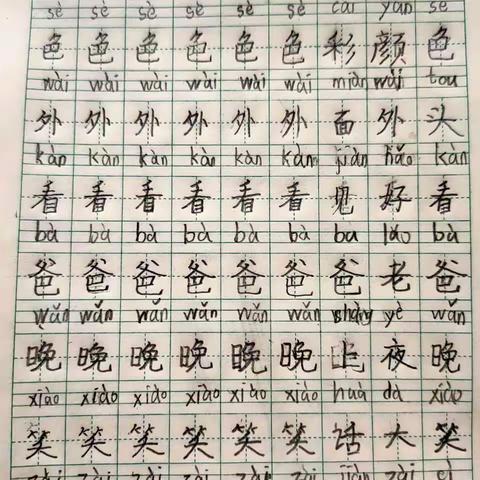 sè sè sè sè sè sè cǎi yán sè
色 色 色 色 色 色 彩 颜 色
wài wài wài wài wài wài miàn wài tou
外 外 外 外 外 外 面 外 头
kàn kàn kàn kàn kàn kàn jiàn hǎo kàn
看 看 看 看 看 看 见 好 看
bà bà bà bà bà bà ba lǎo bà
爸 爸 爸 爸 爸 爸 爸 老 爸
wǎn wǎn wǎn wǎn wǎn wǎn shàng yè wǎn
晚 晚 晚 晚 晚 晚 上 夜 晚
xiào xiào xiào xiào xiào xiào huà dà xiào
笑 笑 笑 笑 笑 笑 话 大 笑